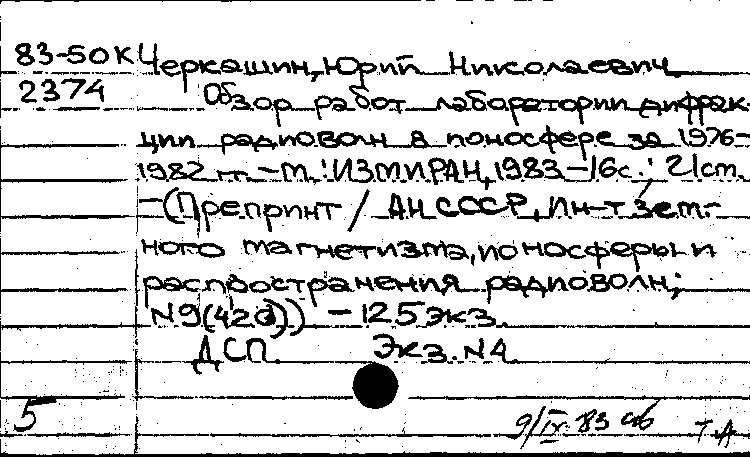 83-50К Черкашин, Юрий Николаевич.
2374 Обзор работ лаборатории дифрак
ции радиоволн в ионосфере за 1976-
1982 гг. - М.: ИЗМИРАН, 1983 - 16с.; 21см.
-(Препринт / АН СССР, Ин-т зем-
ного магнетизма, ионосферы и
распространения радиоволн;
N9(42)) - 125 экз.
ДСП. Экз. N4.
5
9/IX.83